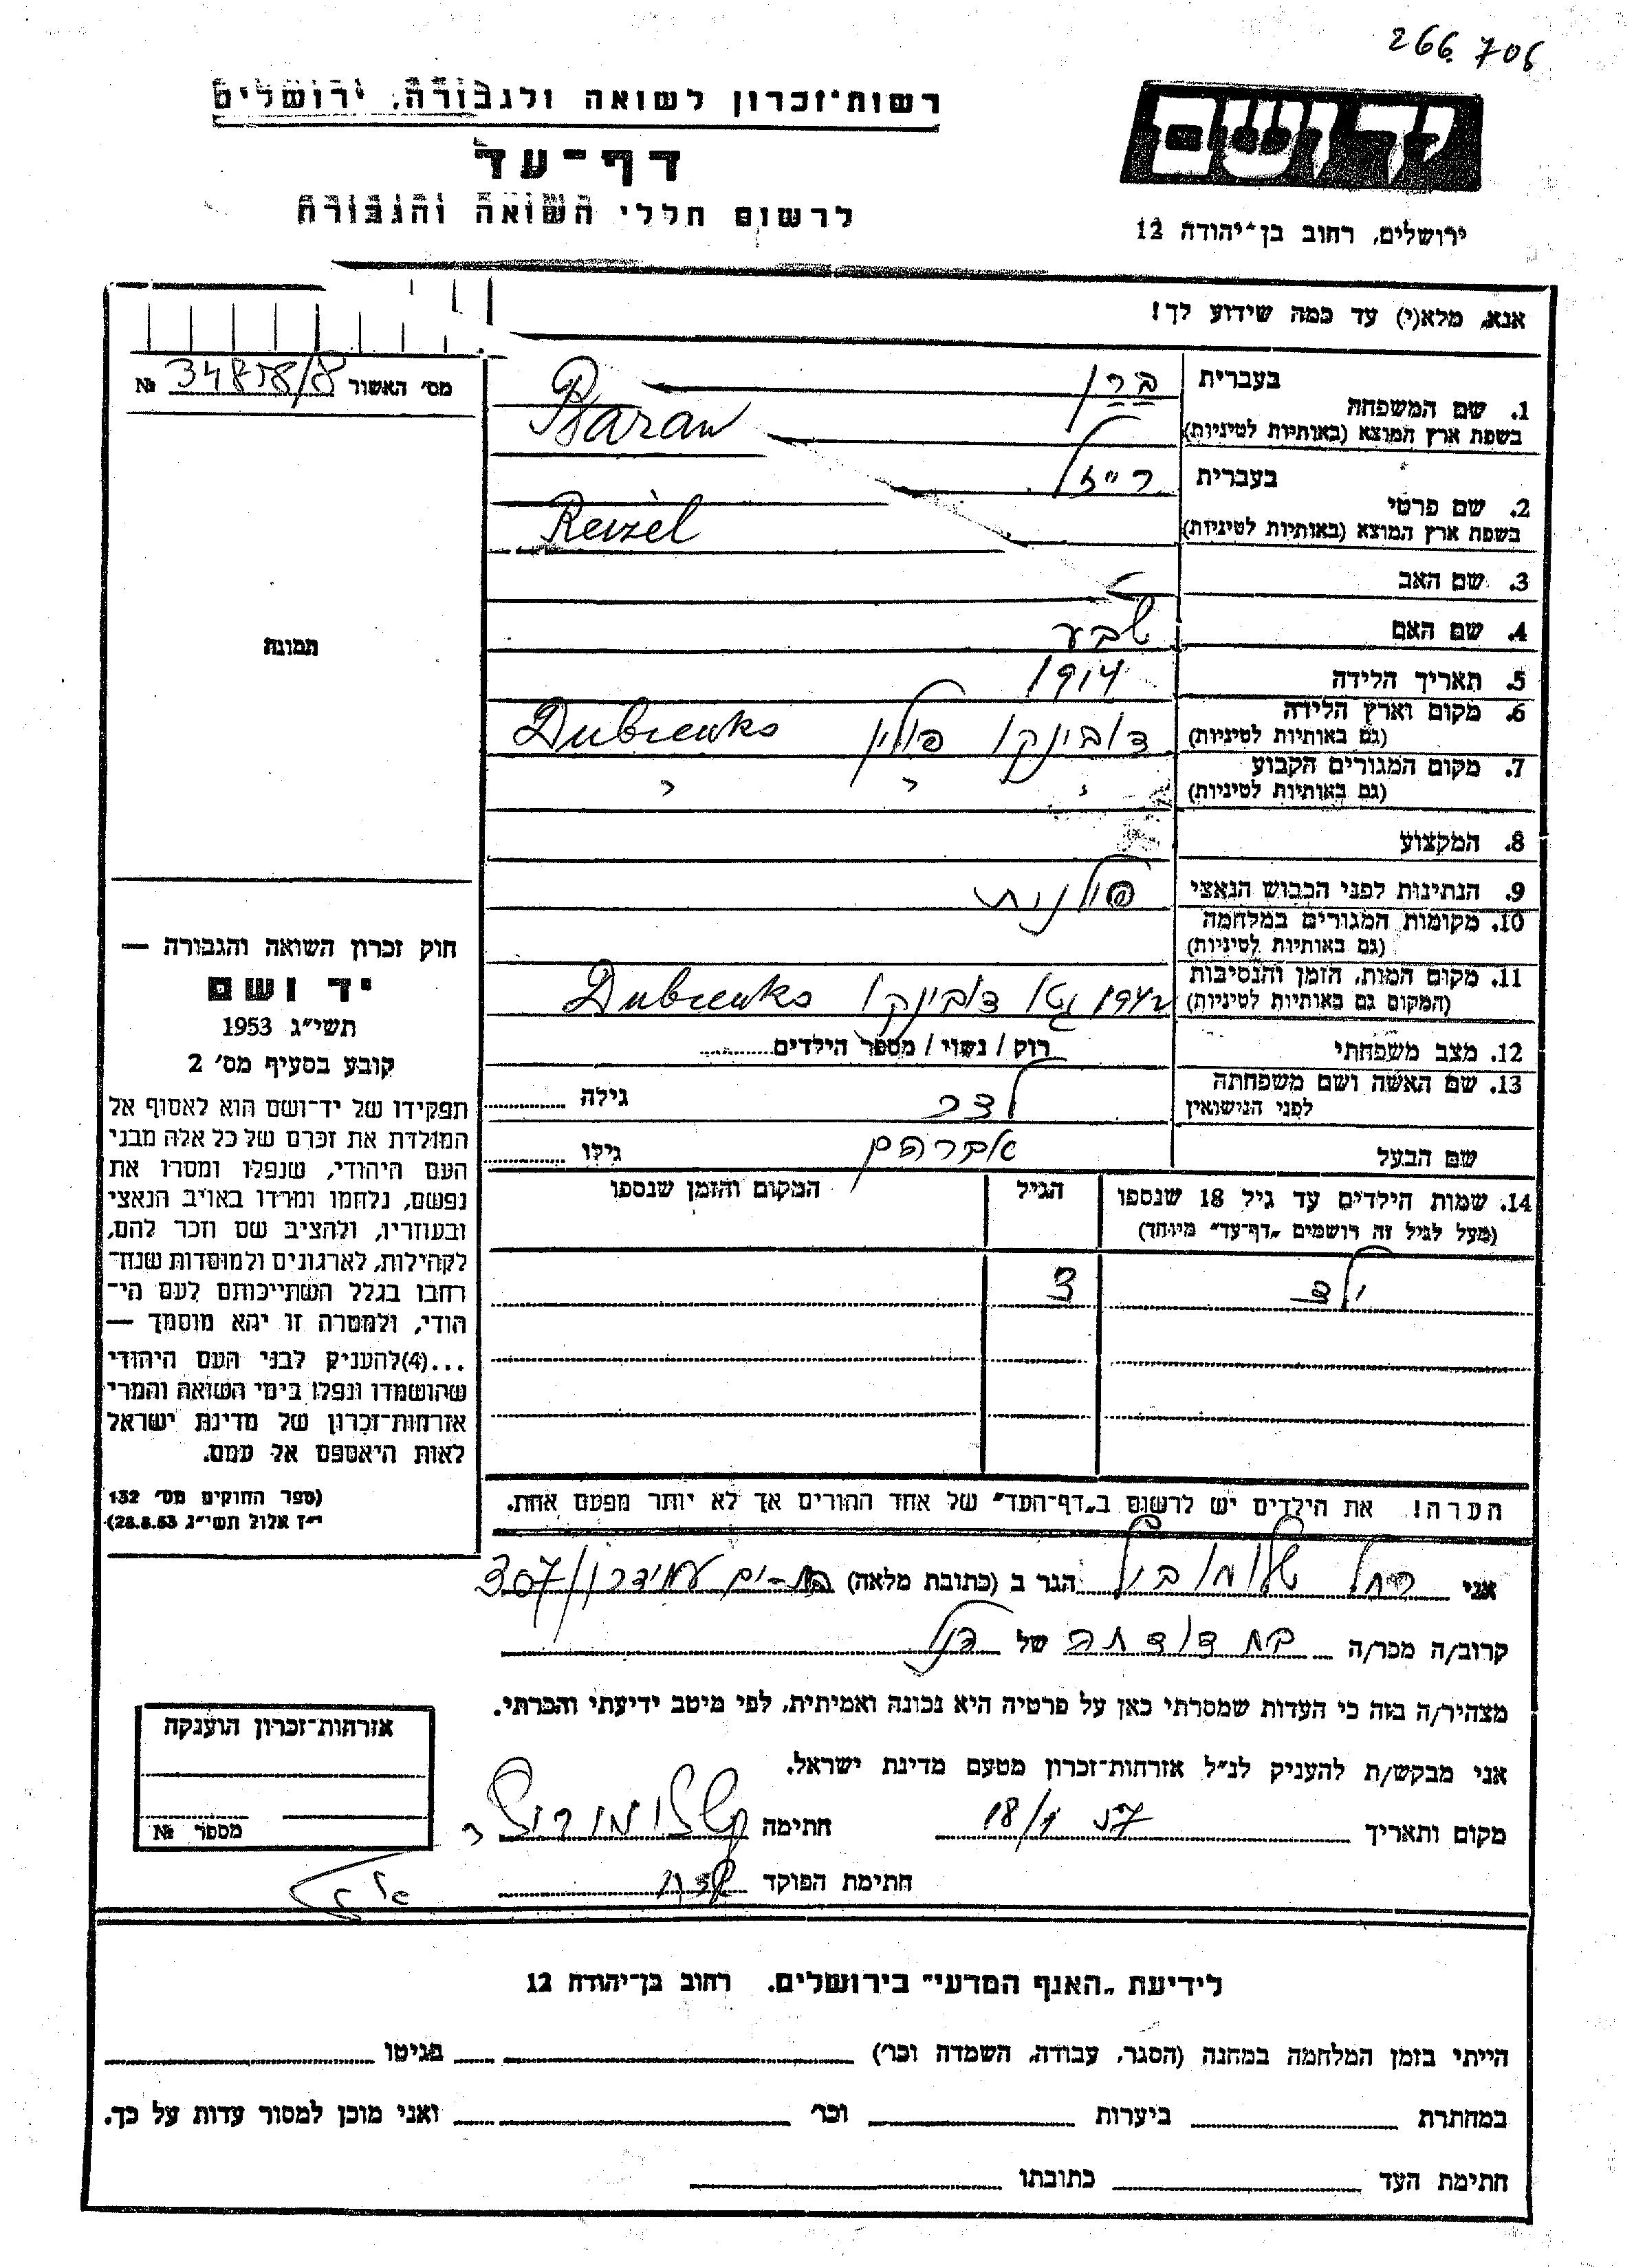 266706
רשות־זכרון לשואה ולגבורה, ירושלים
יד ושם
דף־עד
לרשום חללי השואה והגבורה
ירושלים, רחוב בן־יהודה 12
אנא, מלא(י) עד כמה שידוע לך!
מס׳ האשור 34858/8 №
תמונה
1. שם המשפחה
בעברית ברן
בשפת ארץ המוצא (באותיות לטיניות) Baran
2. שם פרטי
בעברית רייזל
בשפת ארץ המוצא (באותיות לטיניות) Reizel
3. שם האב
4. שם האם שבע
5. תאריך הלידה 1914
6. מקום וארץ הלידה
(גם באותיות לטיניות) דובינקו פולין Dubienko
7. מקום המגורים הקבוע
(גם באותיות לטיניות) " " "
8. המקצוע
9. הנתינות לפני הכבוש הנאצי פולנית
10. מקומות המגורים במלחמה
(גם באותיות לטיניות)
11. מקום המות, הזמן והנסיבות
(המקום גם באותיות לטיניות) 1942 גטו דובינקו Dubienko
12. מצב משפחתי רוק / נשוי / מספר הילדים
13. שם האשה ושם משפחתה
לפני הנישואין לדר גילה
שם הבעל אברהם גילו
14. שמות הילדים עד גיל 18 שנספו
(מעל לגיל זה רושמים „דף־עד״ מיוחד)
הגיל
המקום והזמן שנספו
ילד 3
הערה! את הילדים יש לרשום ב„דף־העד״ של אחד ההורים אך לא יותר מפעם אחת.
חוק זכרון השואה והגבורה —
יד ושם
תשי״ג 1953
קובע בסעיף מס׳ 2
תפקידו של יד־ושם הוא לאסוף אל
המולדת את זכרם של כל אלה מבני
העם היהודי, שנפלו ומסרו את
נפשם, נלחמו ומרדו באויב הנאצי
ובעוזריו, ולהציב שם וזכר להם,
לקהילות, לארגונים ולמוסדות שנח־
רבו בגלל השתייכותם לעם הי־
הודי, ולמטרה זו יהא מוסמך —
...(4) להעניק לבני העם היהודי
שהושמדו ונפלו בימי השואה והמרי
אזרחות־זכרון של מדינת ישראל
לאות היאספם אל עמם.
(ספר החוקים מס׳ 132
י״ז אלול תשי״ג 28.8.53)
אני רחל הגר ב (כתובת מלאה) בת-ים עמידר 307
קרוב/ה מכר/ה בת דודתה של הנ״ל
מצהיר/ה בזה כי העדות שמסרתי כאן על פרטיה היא נכונה ואמיתית, לפי מיטב ידיעתי והכרתי.
אני מבקש/ת להעניק לנ״ל אזרחות־זכרון מטעם מדינת ישראל.
מקום ותאריך 18/1 57 חתימה
חתימת הפוקד
אזרחות־זכרון הוענקה
מספר №
לידיעת „האגף המדעי״ בירושלים. רחוב בן־יהודה 12
הייתי בזמן המלחמה במחנה (הסגר, עבודה, השמדה וכר׳) בגיטו
במחתרת ביערות וכר׳ ואני מוכן למסור עדות על כך.
חתימת העד כתובתו